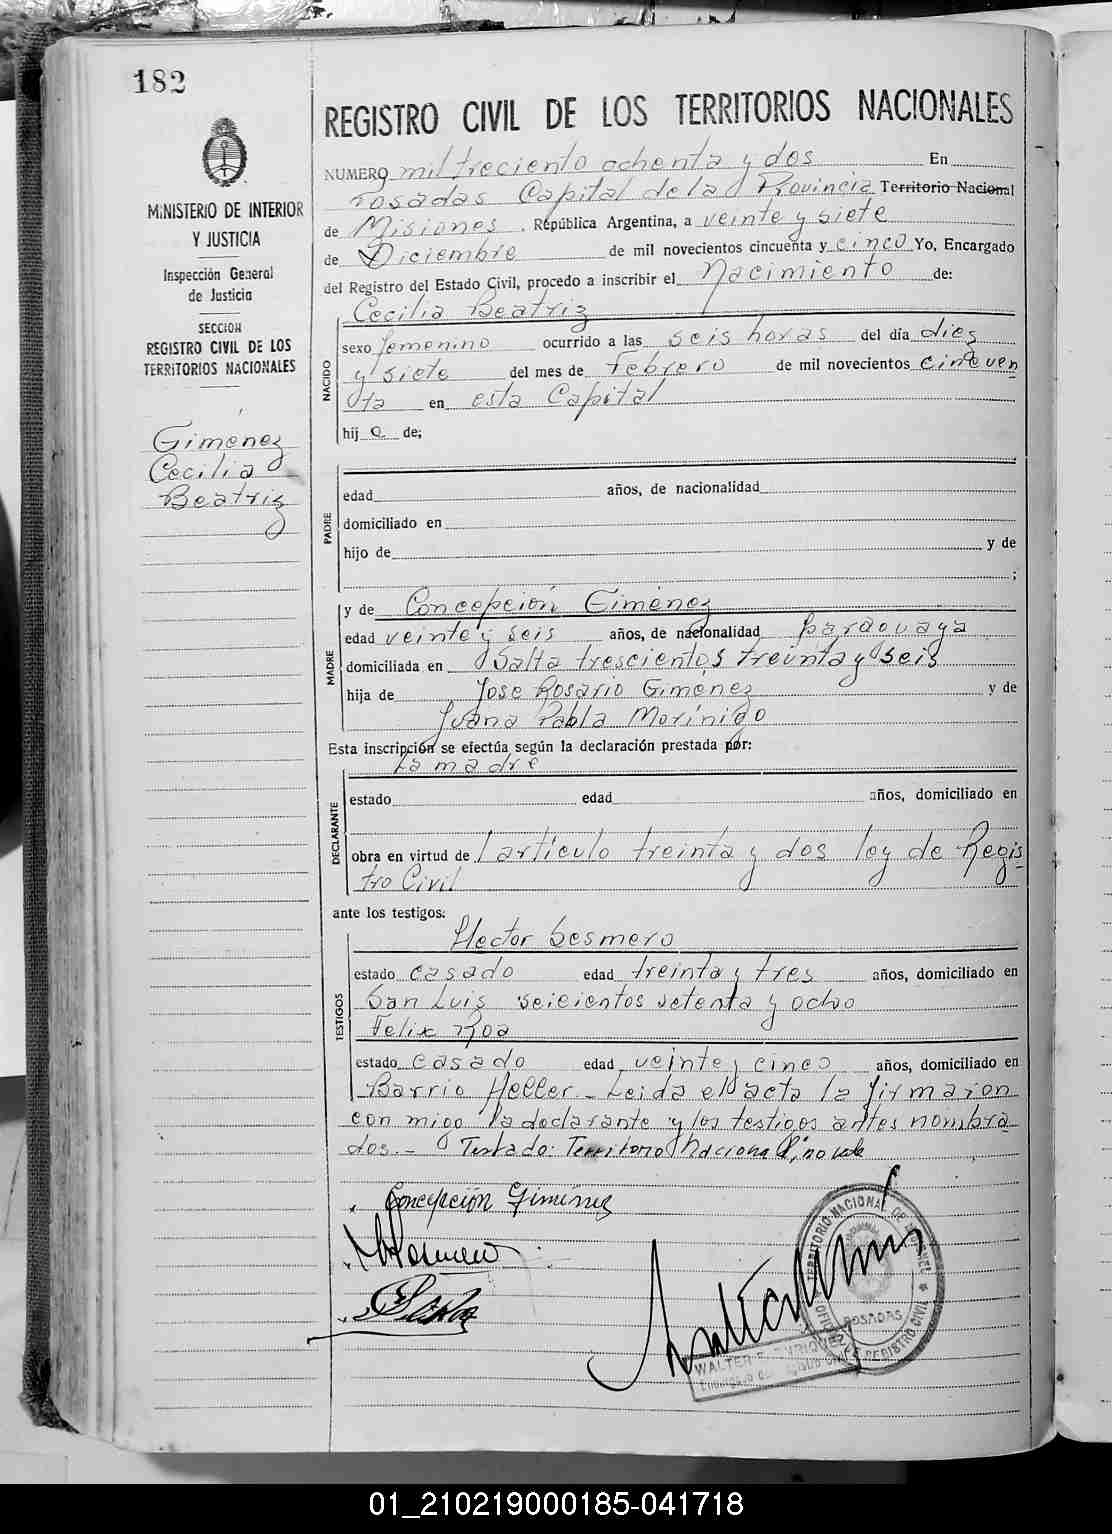 182
MINISTERIO DE INTERIOR
Y JUSTICIA
Inspección General
de Justicia
SECCION
REGISTRO CIVIL DE LOS
TERRITORIOS NACIONALES
Giménez
Cecilia
Beatriz
REGISTRO CIVIL DE LOS TERRITORIOS NACIONALES
NUMERO mil treciento ochenta y dos En
Posadas Capital de la Provincia Territorio Nacional
de Misiones, República Argentina, a veinte y siete
de Diciembre de mil novecientos cincuenta y cinco Yo, Encargado
del Registro del Estado Civil, procedo a inscribir el Nacimiento de:
NACIDO
Cecilia Beatriz
sexo femenino ocurrido a las seis horas del día diez
y siete del mes de Febrero de mil novecientos cincuen
ta en esta Capital
hij a de;
PADRE
edad años, de nacionalidad
domiciliado en
hijo de y de
;
MADRE
y de Concepción Giménez
edad veinte y seis años, de nacionalidad paraguaya
domiciliada en Salta trescientos treinta y seis
hija de José Rosario Giménez y de
Juana Pabla Morínigo
Esta inscripción se efectúa según la declaración prestada por:
La madre
DECLARANTE
estado edad años, domiciliado en
obra en virtud de l artículo treinta y dos ley de Regis-
tro Civil
ante los testigos:
TESTIGOS
Hector Sesmero
estado casado edad treinta y tres años, domiciliado en
San Luis seicientos setenta y ocho
Felix Roa
estado casado edad veinte y cinco años, domiciliado en
Barrio Heller. Leida el acta la firmaron
con migo la declarante y los testigos antes nombra
dos.- Testado: Territorio Nacional, no vale
Concepción Giménez
TERRITORIO NACIONAL DE MISIONES
OFICINA DE REGISTRO CIVIL
POSADAS
WALTER
01_210219000185-041718